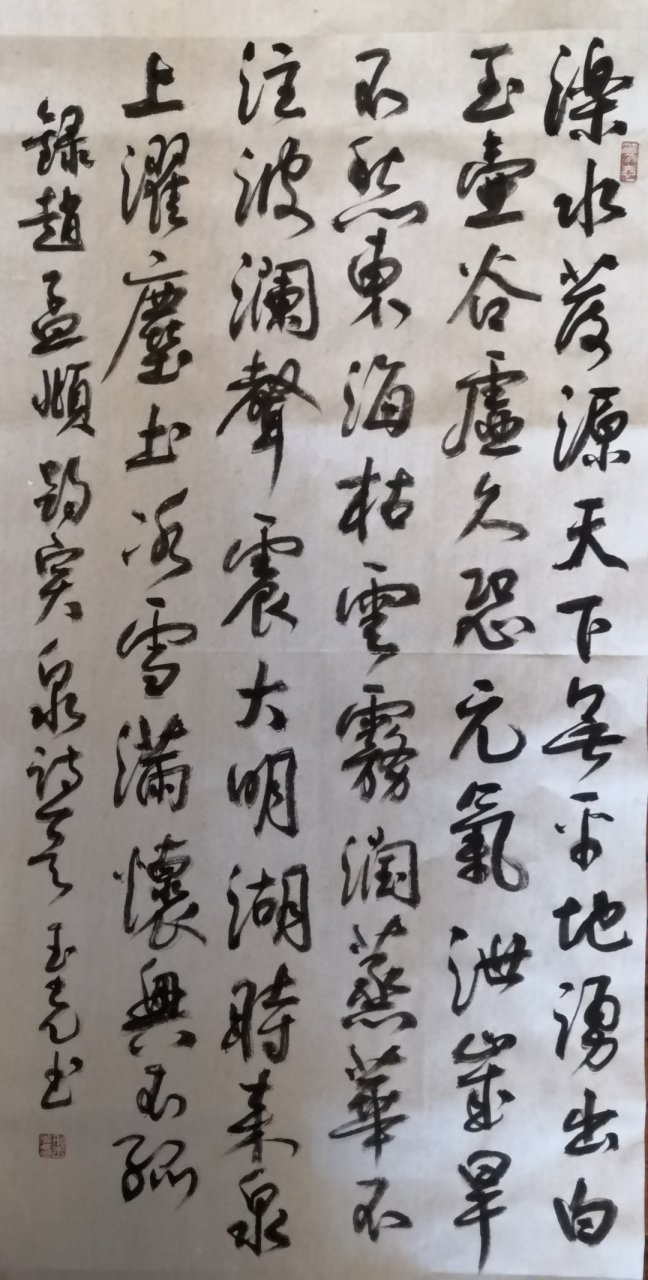 濼水發源天下無平地湧出白
玉壺谷虛久恐元氣泄歲旱
不愁東海枯雲霧潤蒸華不
注波瀾聲震大明湖時來泉
上濯塵土冰雪滿懷興不孤
錄趙孟頫趵突泉詩 書